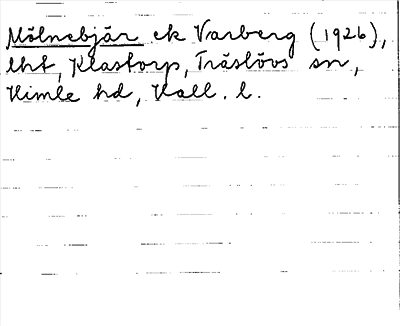 Mölnebjär ek Varberg (1926),
lht, Klastorp, Träslövs sn,
Himle hd, Hall. l.